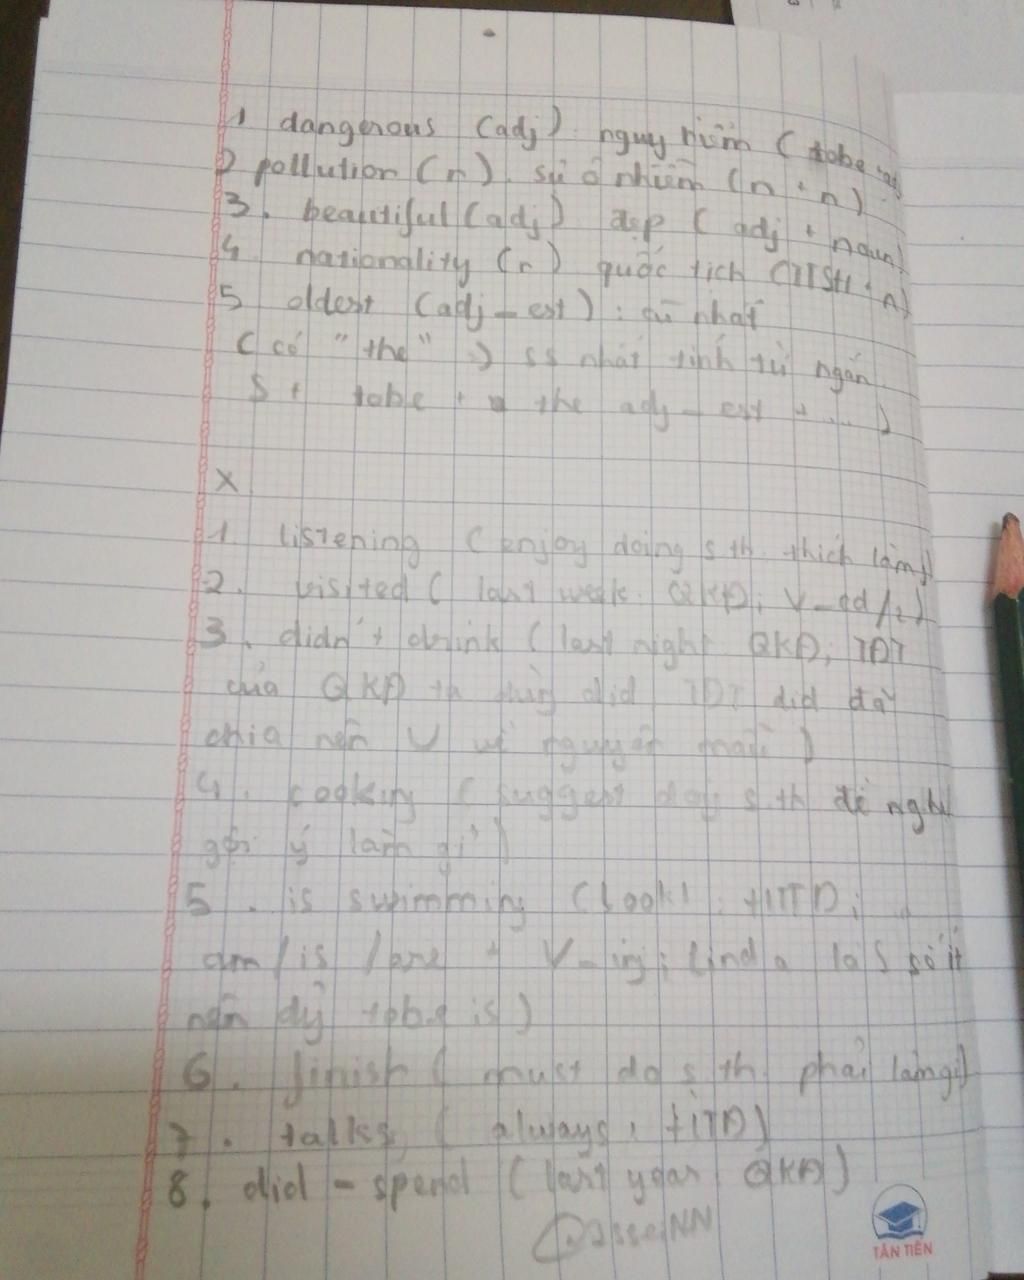 1 dangerous (adj) nguy hiểm ( tobe
2 pollution (n). sự ô nhiễm (n + n)
3. beautiful (adj) đẹp ( adj + noun)
4 nationality (n) quốc tịch (TTSH + n)
5 oldest (adj - est) : cũ nhất
( có " the " → ss nhất tính từ ngắn
S + tobe + the adj - est + ... )
X
1. listening ( enjoy doing sth. thích làm
2. visited ( last week. QKĐ; V_ed/2)
3. didn't drink ( last night QKĐ; TĐT
của QKĐ th dùng did TĐT did đã
chia nên V về nguyên mẫu )
4. cooking ( suggest doing sth đề nghị
gợi ý làm gì )
5. is swimming ( look! : HTTD;
am / is / are + V-ing; Linda là S số ít
nên dùng tobe is )
6. finish ( must do sth. phải làm gì)
7. talks ( always, HTĐ)
8. did - spend ( last year QKĐ)
TÂN TIẾN